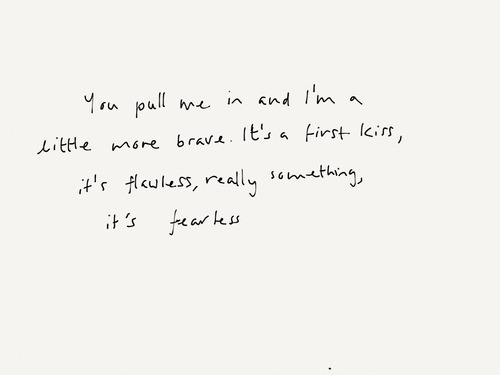 You pull me in and I'm a
little more brave. It's a first kiss,
it's flawless, really something,
it's fearless